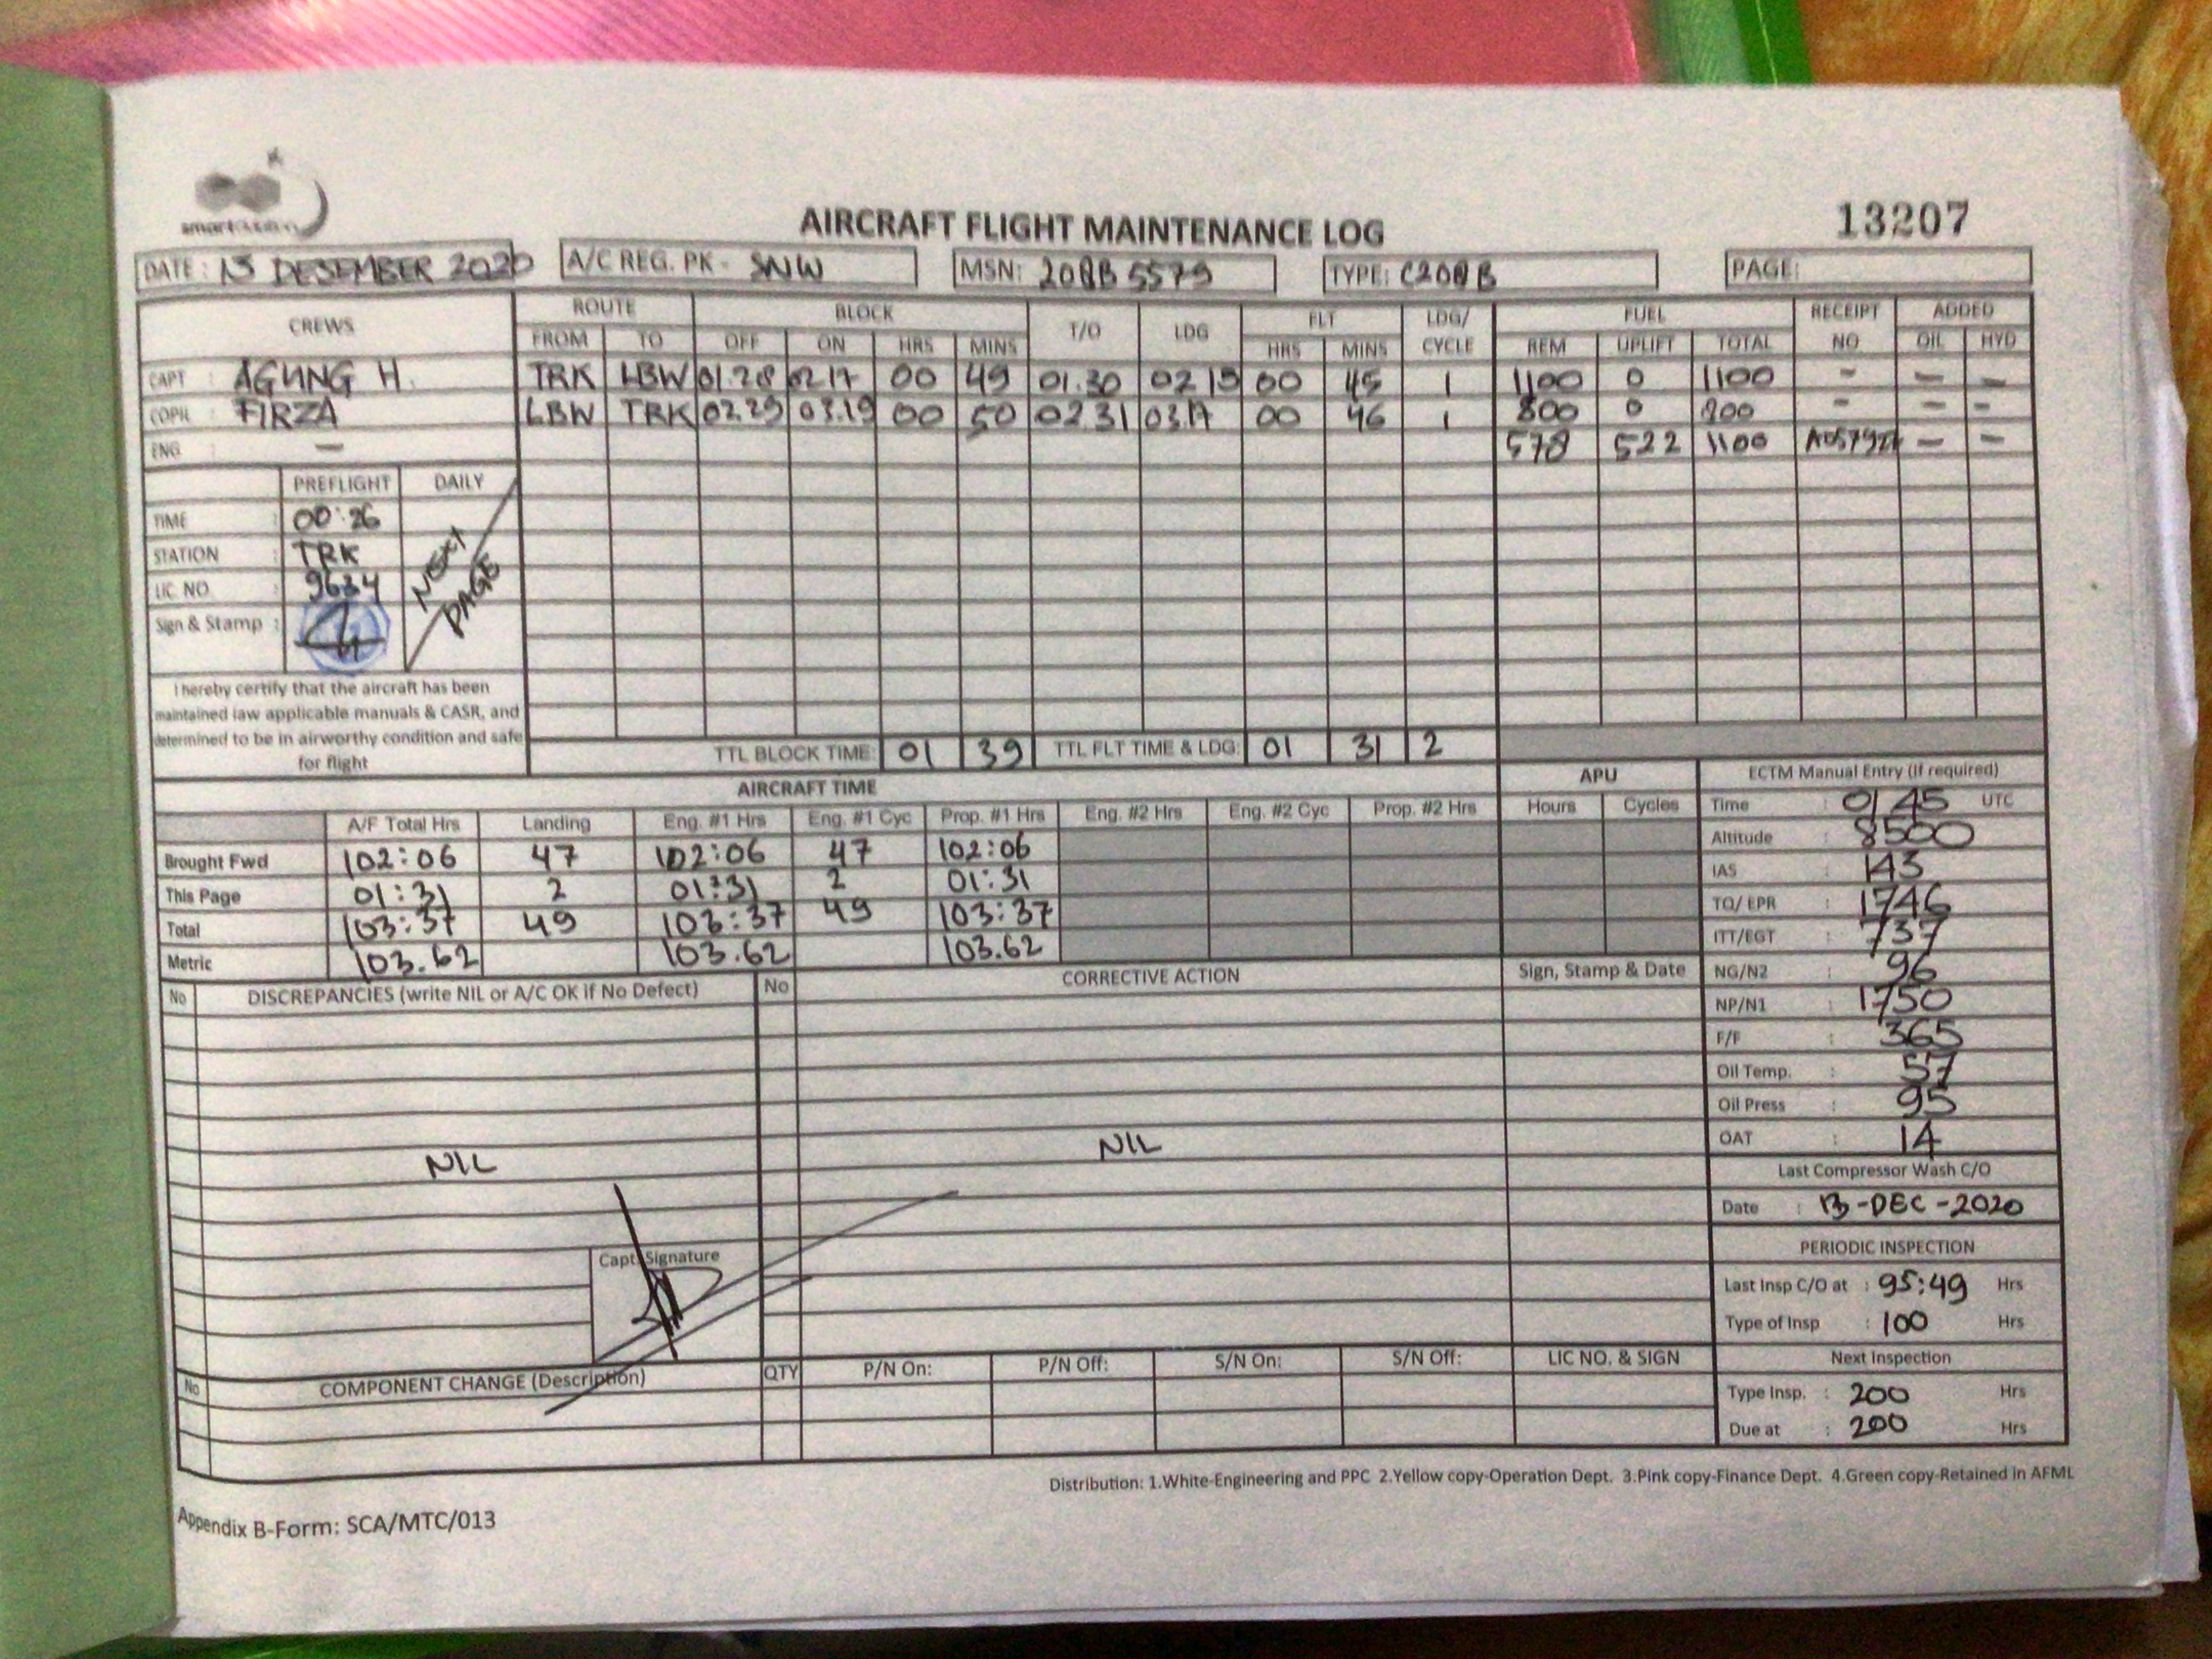 smart
AIRCRAFT FLIGHT MAINTENANCE LOG
13207
DATE: 13 DESEMBER 2020 A/C REG. PK - SNW MSN: 208B 5579 TYPE: C208B PAGE:
CREWS ROUTE BLOCK T/O LDG FLT LDG/ CYCLE FUEL RECEIPT NO ADDED
FROM TO OFF ON HRS MINS HRS MINS REM UPLIFT TOTAL OIL HYD
CAPT : AGUNG H. TRK LBW 01.28 02.17 00 49 01.30 02 15 00 45 1 1100 0 1100 - - -
COPIL : FIRZA LBW TRK 02.29 03.19 00 50 02 31 03.17 00 46 1 800 0 800 - - -
ENG : - 578 522 1100 - -
PREFLIGHT DAILY
TIME : 00:26
STATION : TRK
LIC. NO : 9634
Sign & Stamp :
NEXT PAGE
I hereby certify that the aircraft has been
maintained iaw applicable manuals & CASR, and
determined to be in airworthy condition and safe
for flight
TTL BLOCK TIME: 01 39 TTL FLT TIME & LDG: 01 31 2
AIRCRAFT TIME APU
A/F Total Hrs Landing Eng. #1 Hrs Eng. #1 Cyc Prop. #1 Hrs Eng. #2 Hrs Eng. #2 Cyc Prop. #2 Hrs Hours Cycles
Brought Fwd 102:06 47 102:06 47 102:06
This Page 01:31 2 01:31 2 01:31
Total 103:37 49 103:37 49 103:37
Metric 103.62 103.62 103.62
ECTM Manual Entry (If required)
Time : 01 45 UTC
Altitude : 8500
IAS : 143
TQ/ EPR : 1746
ITT/EGT : 737
NG/N2 : 96
NP/N1 : 1750
F/F : 365
Oil Temp. : 57
Oil Press : 95
OAT : 14
Last Compressor Wash C/O
Date : 13-DEC-2020
PERIODIC INSPECTION
Last Insp C/O at : 95:49 Hrs
Type of Insp : 100 Hrs
Next Inspection
Type Insp. : 200 Hrs
Due at : 200 Hrs
No DISCREPANCIES (write NIL or A/C OK if No Defect) No CORRECTIVE ACTION Sign, Stamp & Date
NIL NIL
Capt. Signature
No COMPONENT CHANGE (Description) QTY P/N On: P/N Off: S/N On: S/N Off: LIC NO. & SIGN
Distribution: 1.White-Engineering and PPC 2.Yellow copy-Operation Dept. 3.Pink copy-Finance Dept. 4.Green copy-Retained in AFML
Appendix B-Form: SCA/MTC/013